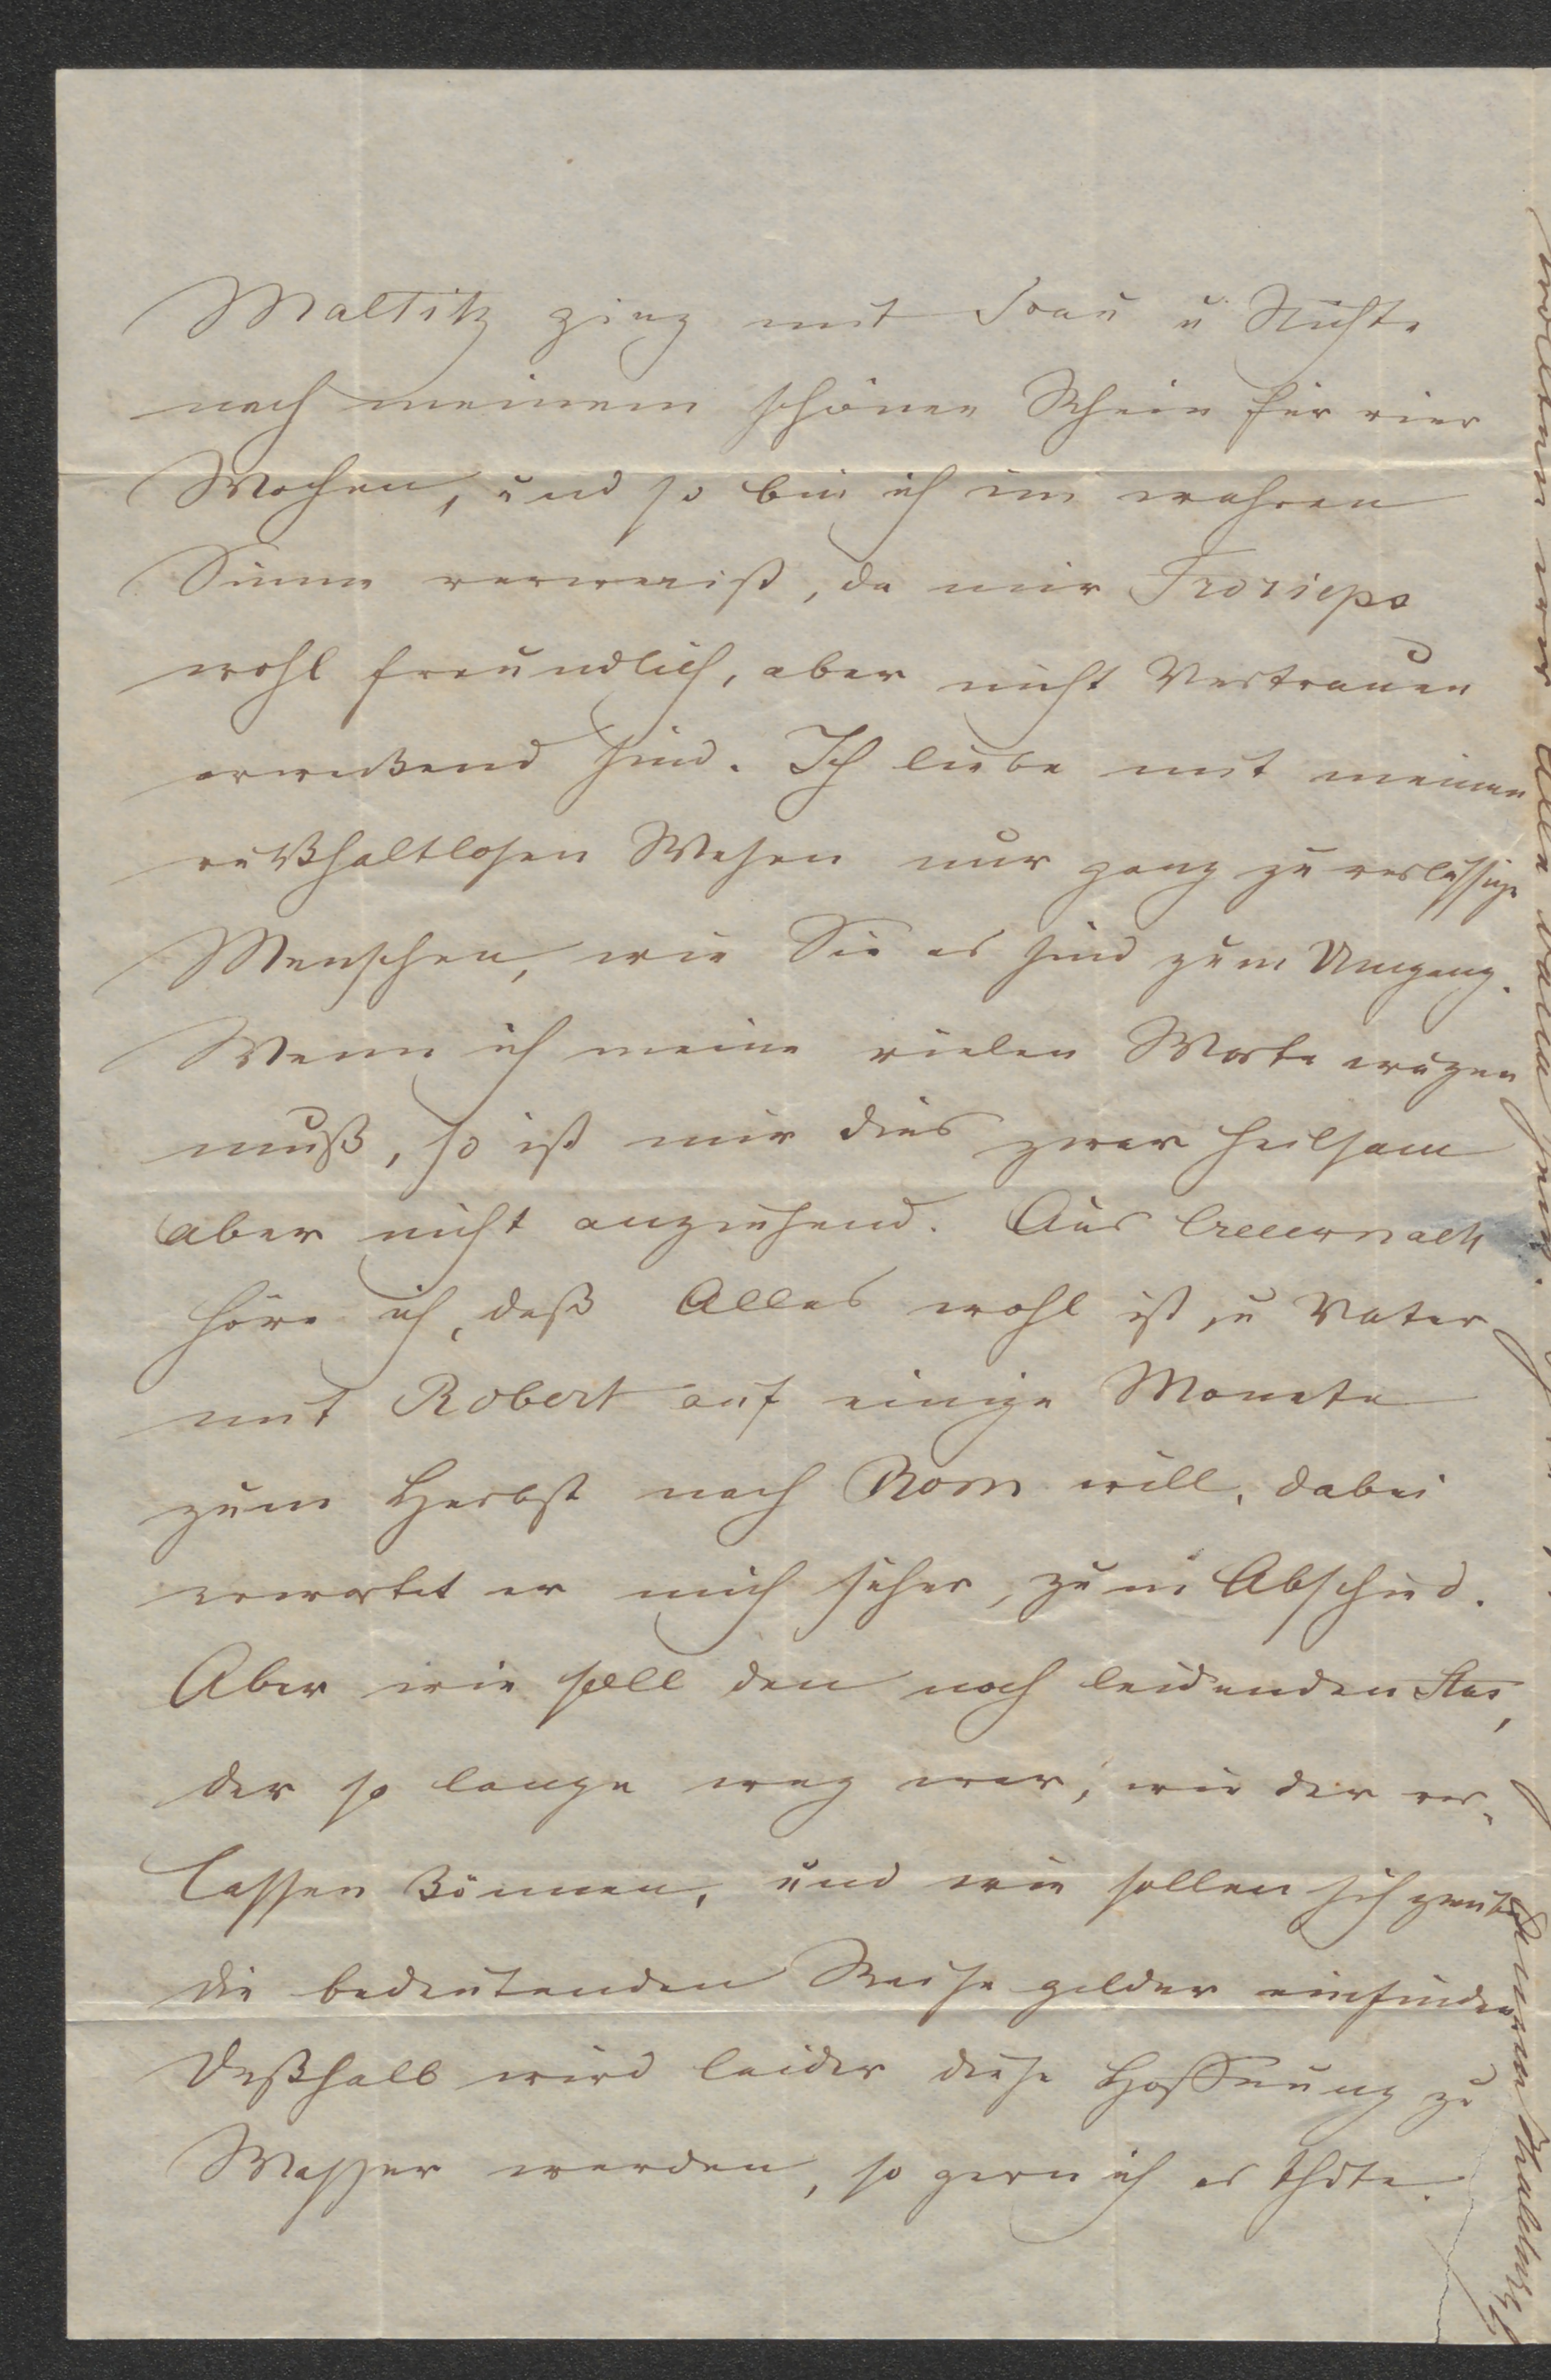 Maltitz ging mit Frau u Nichte
nach meinem schönen Rhein für vier
Wochen, und so bin ich im wahren
Sinne verwaist, da mir Frorieps
wohl freundlich, aber nicht Vertrauen
erweckend sind. Ich liebe mit meinem
rückhaltlosen Wesen nur ganz zuverlässige
Menschen, wie Sie es sind zum Umgang.
Wenn ich meine vielen Worte wägen
muß, so ist mir dies zwar heilsam
aber nicht anziehend. Aus
höre ich, daß Alles wohl ist, u Vater
mit Robert auf einige Monate
zum Herbst nach Rom will, dabei
erwartet er mich sicher, zum Abschied.
Aber wie soll den noch leidenden
der so lange weg war, wie der ver-
lassen können, und wie sollen sich
die bedeutenden Reisegelder einfinden
Deßhalb wird leider diese Hoffnung zu
Wasser werden, so gern ich es thäte.